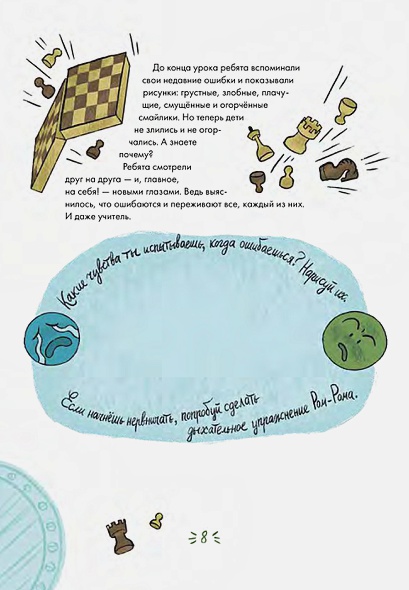 До конца урока ребята вспоминали
свои недавние ошибки и показывали
рисунки: грустные, злобные, плачу-
щие, смущённые и огорчённые
смайлики. Но теперь дети
не злились и не огор-
чались. А знаете
почему?
Ребята смотрели
друг на друга — и, главное,
на себя! — новыми глазами. Ведь выяс-
нилось, что ошибаются и переживают все, каждый из них.
И даже учитель.
Какие чувства ты испытываешь, когда ошибаешься? Нарисуй их.
Если начнёшь нервничать, попробуй сделать
дыхательное упражнение Рон-Рона.
8